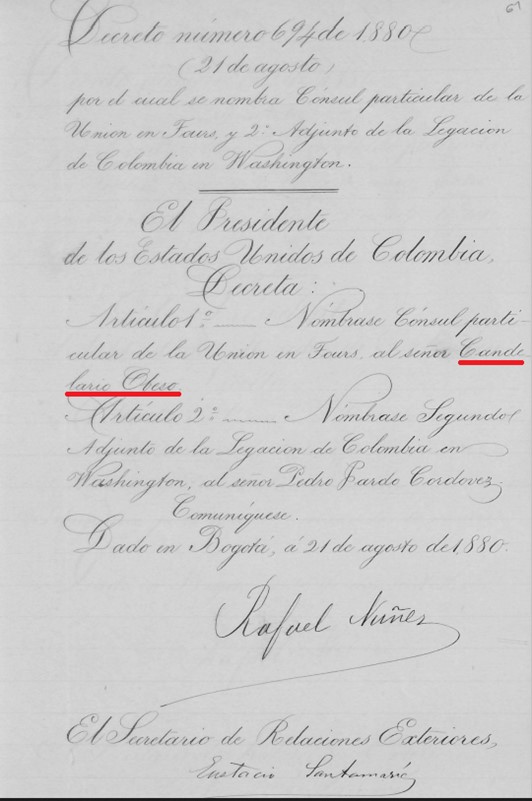 67
Decreto número 694 de 1880
(21 de agosto)
por el cual se nombra Cónsul particular de la
Union en Tours, y 2º Adjunto de la Legacion
de Colombia en Washington.
El Presidente
de los Estados Unidos de Colombia,
Decreta:
Artículo 1º — Nómbrase Cónsul parti-
cular de la Union en Tours, al señor Cande
lario Obeso.
Artículo 2º — Nómbrase Segundo
Adjunto de la Legacion de Colombia en
Washington, al señor Pedro Pardo Cordovez.
Comuníquese.
Dado en Bogotá, á 21 de agosto de 1,880.
Rafael Núñez
El Secretario de Relaciones Exteriores,
Eustacio Santamaría